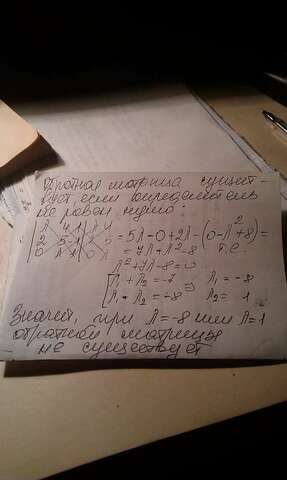 Обратная матрица сущест-
вует, если определитель
не равен нулю:
|λ 4 1| λ 4
|2 5 -1| 2 5 = 5λ - 0 + 2λ - (0 - λ² + 8) =
|0 λ 1| 0 λ = 7λ + λ² - 8 т.е.
λ² + 7λ - 8 = 0
[λ₁ + λ₂ = -7 ⇒ λ₁ = -8
[λ₁ * λ₂ = -8 λ₂ = 1
Значит, при λ = -8 или λ = 1
обратной матрицы
не существует